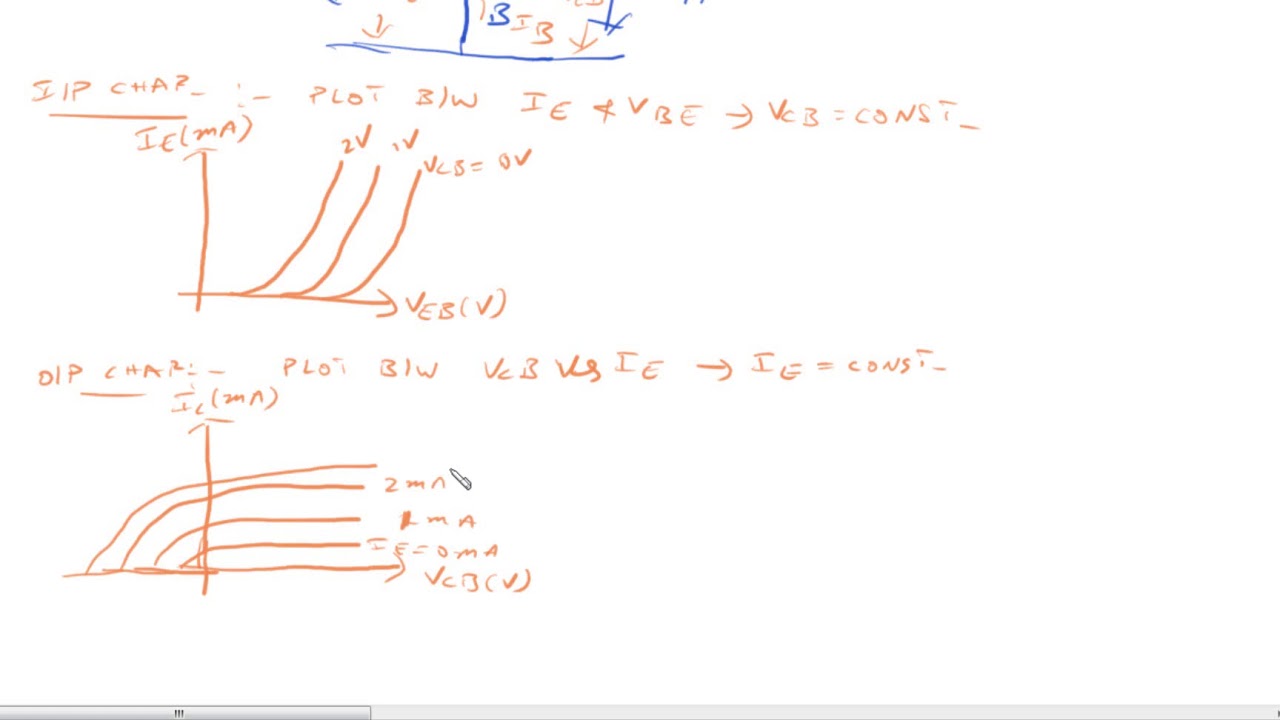 B IB
I/P CHAR- :- PLOT B/W IE & VBE → VCB = CONST-
IE(mA)
2V 1V
VCB = 0V
VEB(V)
O/P CHAR:- PLOT B/W VCB Vs IE → IE = CONST-
IC(mA)
2mA
1mA
IE=0mA
VCB(V)